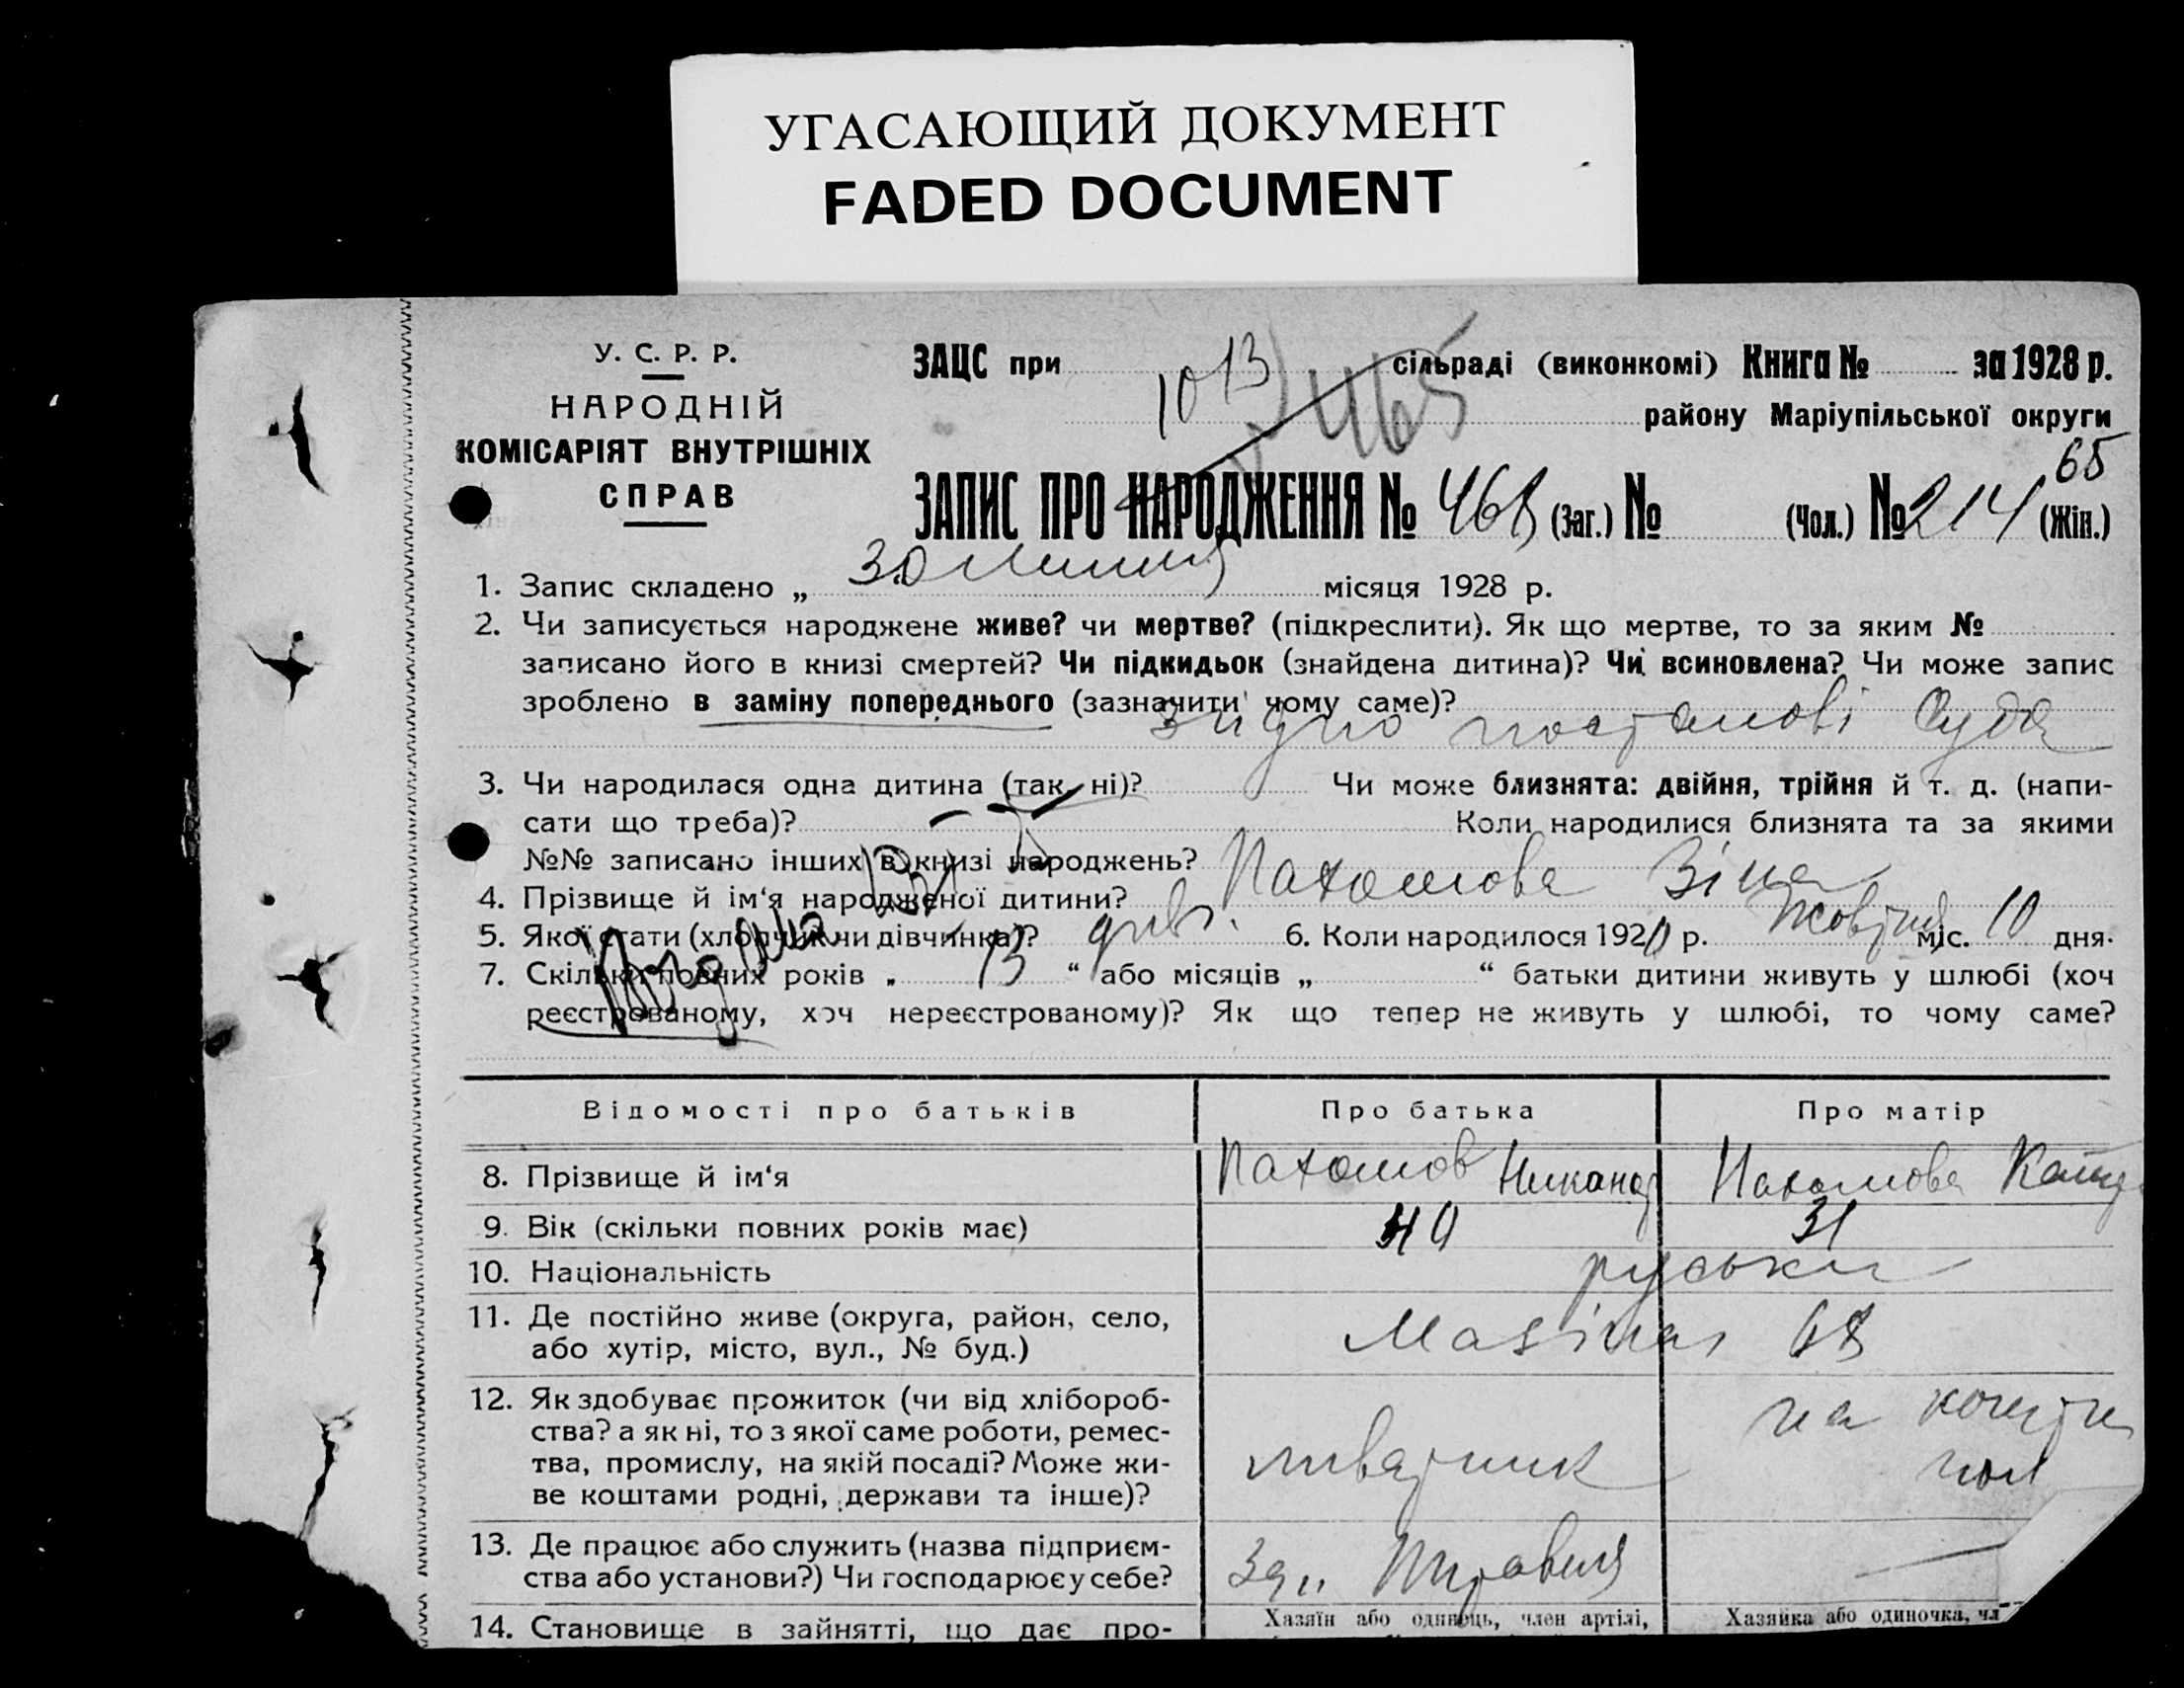 УГАСАЮЩИЙ ДОКУМЕНТ
FADED DOCUMENT
У. С. Р. Р.
НАРОДНІЙ
КОМІСАРІЯТ ВНУТРІШНІХ
СПРАВ
ЗАЦС при 1013 465 сільраді (виконкомі) Книга № за 1928 р.
району Маріупільської округи
65
ЗАПИС ПРО НАРОДЖЕННЯ № 468 (Заг.) № (Чол.) № 214 (Жін.)
1. Запис складено „ 30 Липня місяця 1928 р.
2. Чи записується народжене живе? чи мертве? (підкреслити). Як що мертве, то за яким №
записано його в книзі смертей? Чи підкидьок (знайдена дитина)? Чи всиновлена? Чи може запис
зроблено в заміну попереднього (зазначити чому саме)?
згідно постанові Суда
3. Чи народилася одна дитина (так, ні)? Чи може близнята: двійня, трійня й т. д. (напи-
сати що треба)? Коли народилися близнята та за якими
№№ записано інших в книзі народжень?
4. Прізвище й ім‘я народженої дитини? Пахомова Зіна
5. Якої стати (хлопчик чи дівчинка)? дівч. 6. Коли народилося 1920 р. Жовтня міс. 10 дня.
7. Скільки повних років „ 13 “ або місяців „ “ батьки дитини живуть у шлюбі (хоч
реєстрованому, хоч нереєстрованому)? Як що тепер не живуть у шлюбі, то чому саме?
Відомості про батьків Про батька Про матір
8. Прізвище й ім‘я Пахомов Никанор Пахомова
9. Вік (скільки повних років має) 40 31
10. Національність руськи
11. Де постійно живе (округа, район, село,
або хутір, місто, вул., № буд.) 68
12. Як здобуває прожиток (чи від хлібороб-
ства? а як ні, то з якої саме роботи, ремес-
тва, промислу, на якій посаді? Може жи-
ве коштами родні, держави та інше)?
ливатник на кошти
13. Де працює або служить (назва підприєм-
ства або установи?) Чи господарює у себе?
14. Становище в зайнятті, що дає про-
Хазяїн або одинець, член артілі, Хазяйка або одиночка, чл